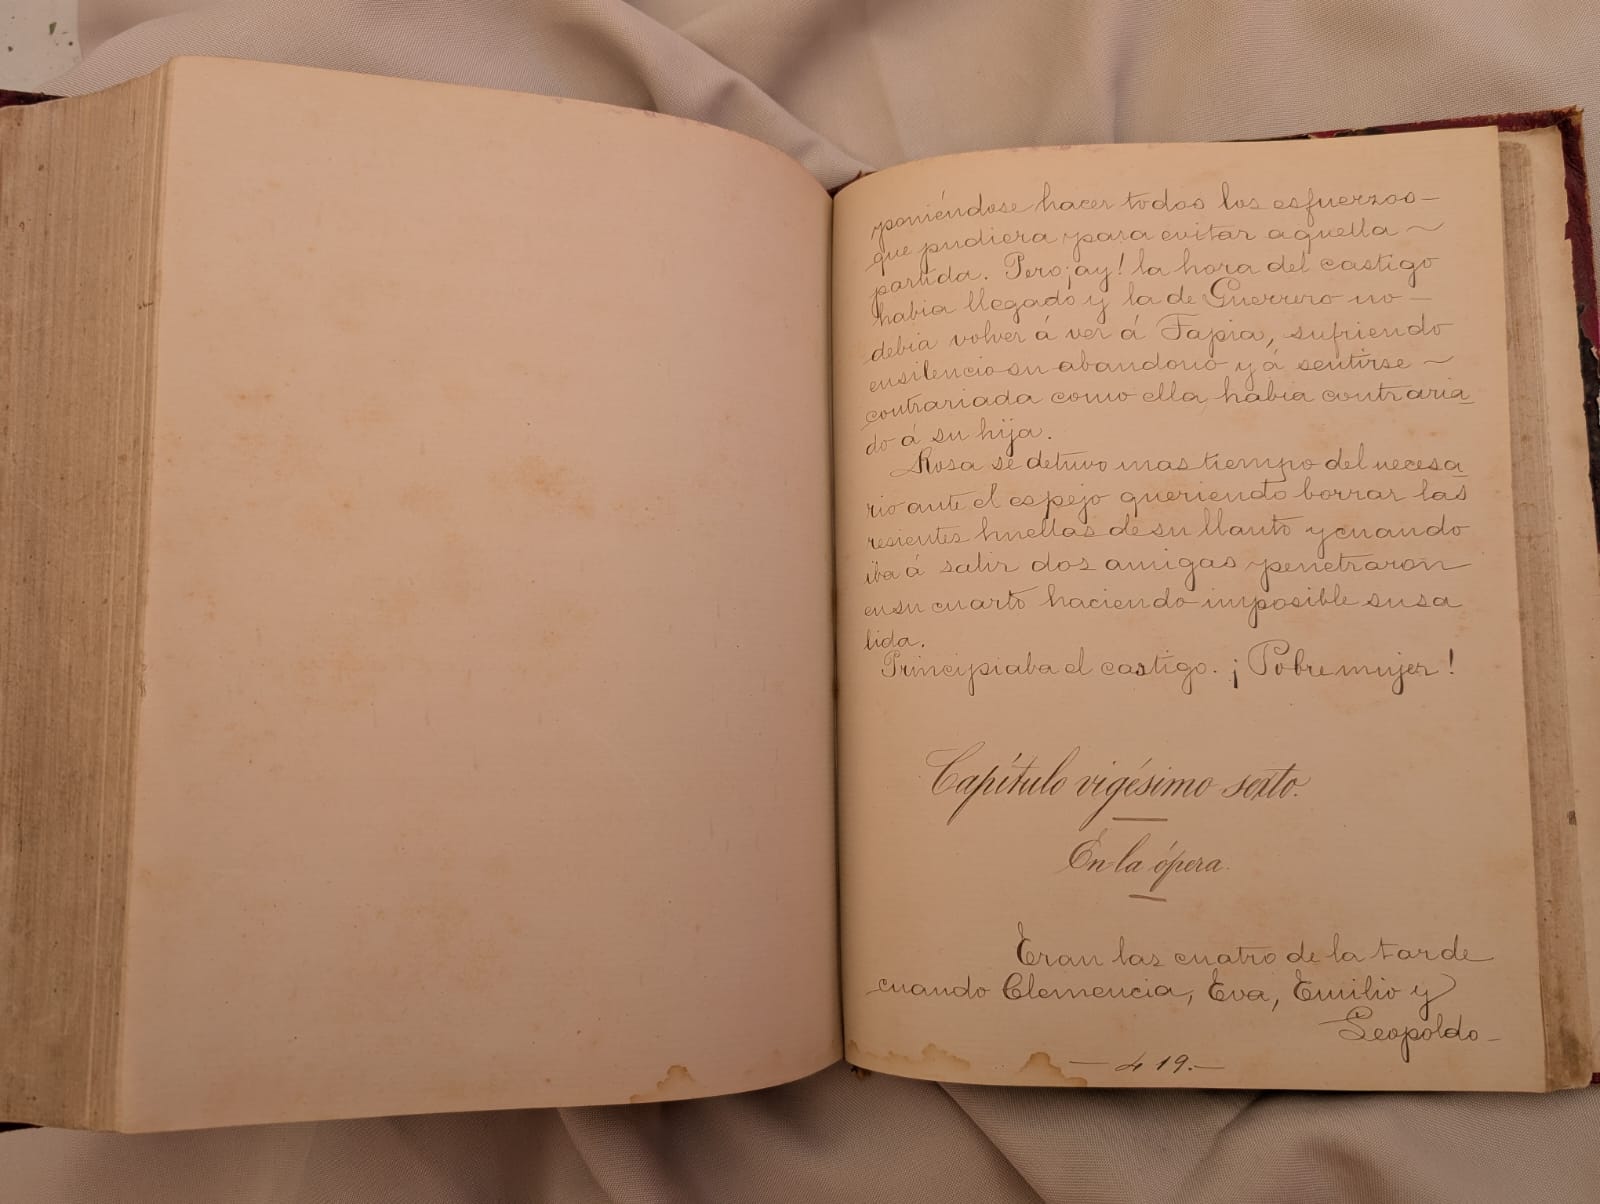 poniéndose hacer todos los esfuerzos—
que pudiera para evitar aquella ~
partida. Pero ¡ay! la hora del castigo
habia llegado y la de Guerrero no—
debia volver á ver á Tapia, sufriendo
en silencio su abandono y á sentirse ~
contrariada como ella habia contraria
do á su hija.
Rosa se detuvo mas tiempo del necesa
rio ante el espejo queriendo borrar las
resientes huellas de su llanto y cuando
iba á salir dos amigas penetraron
en su cuarto haciendo imposible su sa
lida.
Principiaba el castigo. ¡Pobre mujer!
Capítulo vigésimo sexto.
En la ópera.
Eran las cuatro de la tarde
cuando Clemencia, Eva, Emilio y
Leopoldo—
—419.—